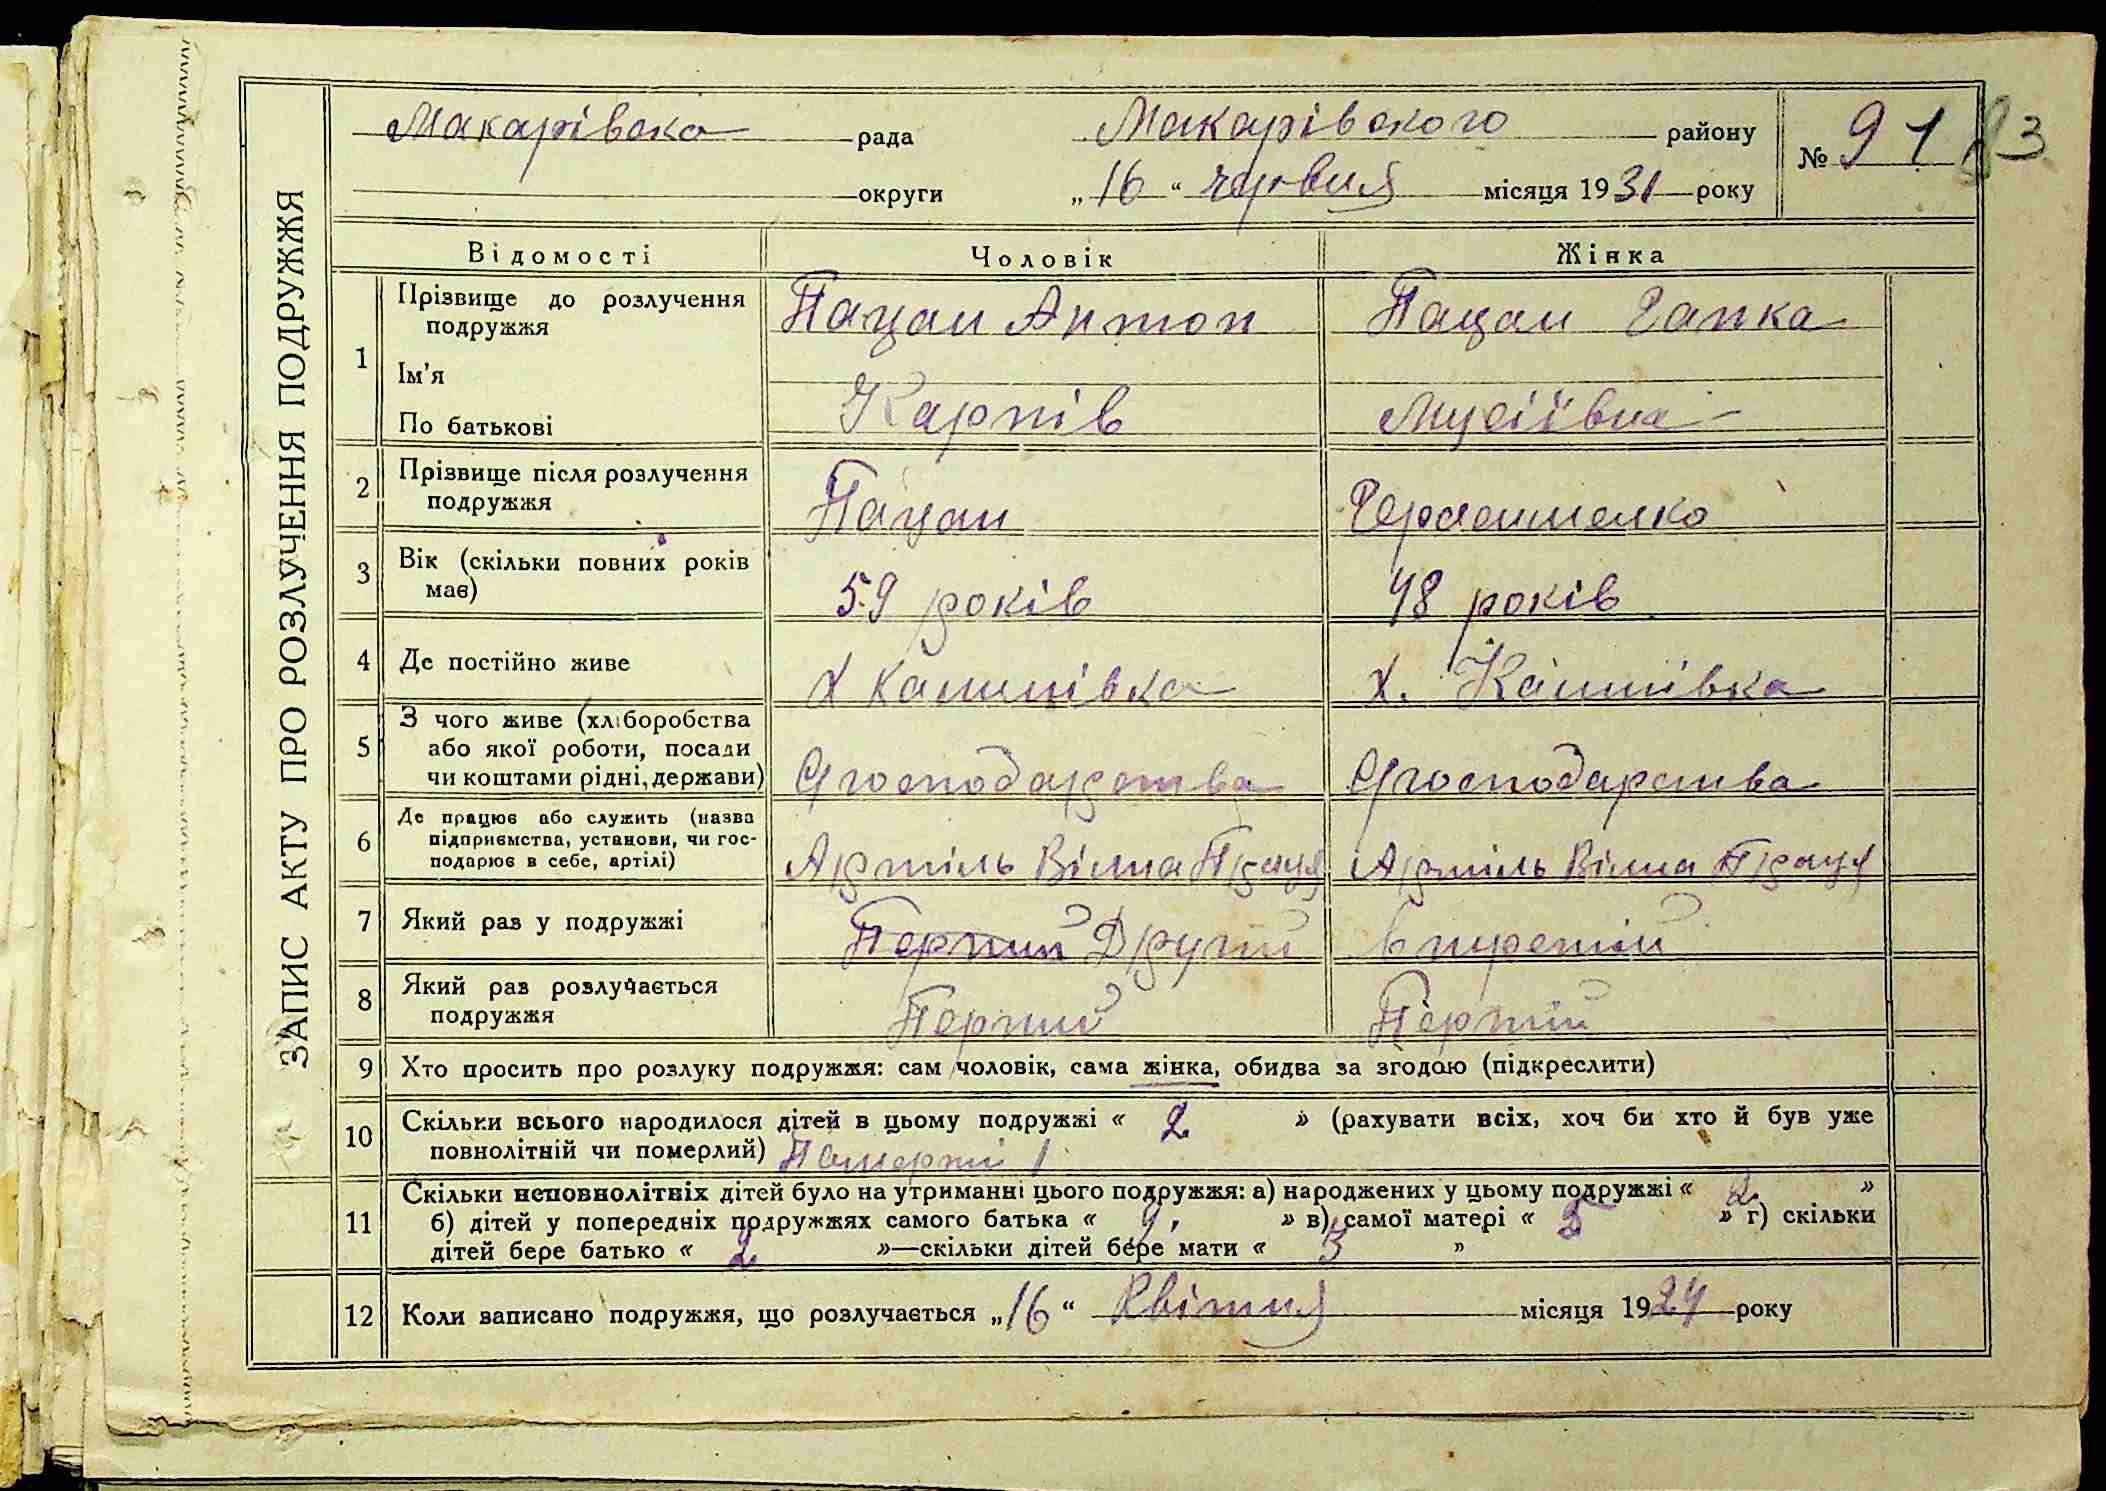 ЗАПИС АКТУ ПРО РОЗЛУЧЕННЯ ПОДРУЖЖЯ
Макарівска рада Макарівского району № 91 83
округи „16“ червня місяця 1931 року
Відомості Чоловік Жінка
1 Прізвище до розлучення подружжя Пацан Антон Пацан Гапка
Ім'я
По батькові Карпів Мусіївна
2 Прізвище після розлучення подружжя Пацан
3 Вік (скільки повних років має) 59 років 48 років
4 Де постійно живе Х Калинівка х.
5 З чого живе (хліборобства або якої роботи, посади чи коштами рідні, держави) С/господарства С/господарства
6 Де працює або служить (назва підприємства, установи, чи господарює в себе, артілі) Артіль Вілна Праця Артіль Вілна Праця
7 Який раз у подружжі Перший Другий
8 Який раз розлучається подружжя Перший Перший
9 Хто просить про розлуку подружжя: сам чоловік, сама жінка, обидва за згодою (підкреслити)
10 Скільки всього народилося дітей в цьому подружжі « 2 » (рахувати всіх, хоч би хто й був уже
повнолітній чи померлий) 1
11 Скільки неповнолітніх дітей було на утриманні цього подружжя: а) народжених у цьому подружжі « 2 »
б) дітей у попередніх подружжях самого батька « » в) самої матері « » г) скільки
дітей бере батько « 2 »—скільки дітей бере мати « 3 »
12 Коли записано подружжя, що розлучається „16“ Квітня місяця 1924 року